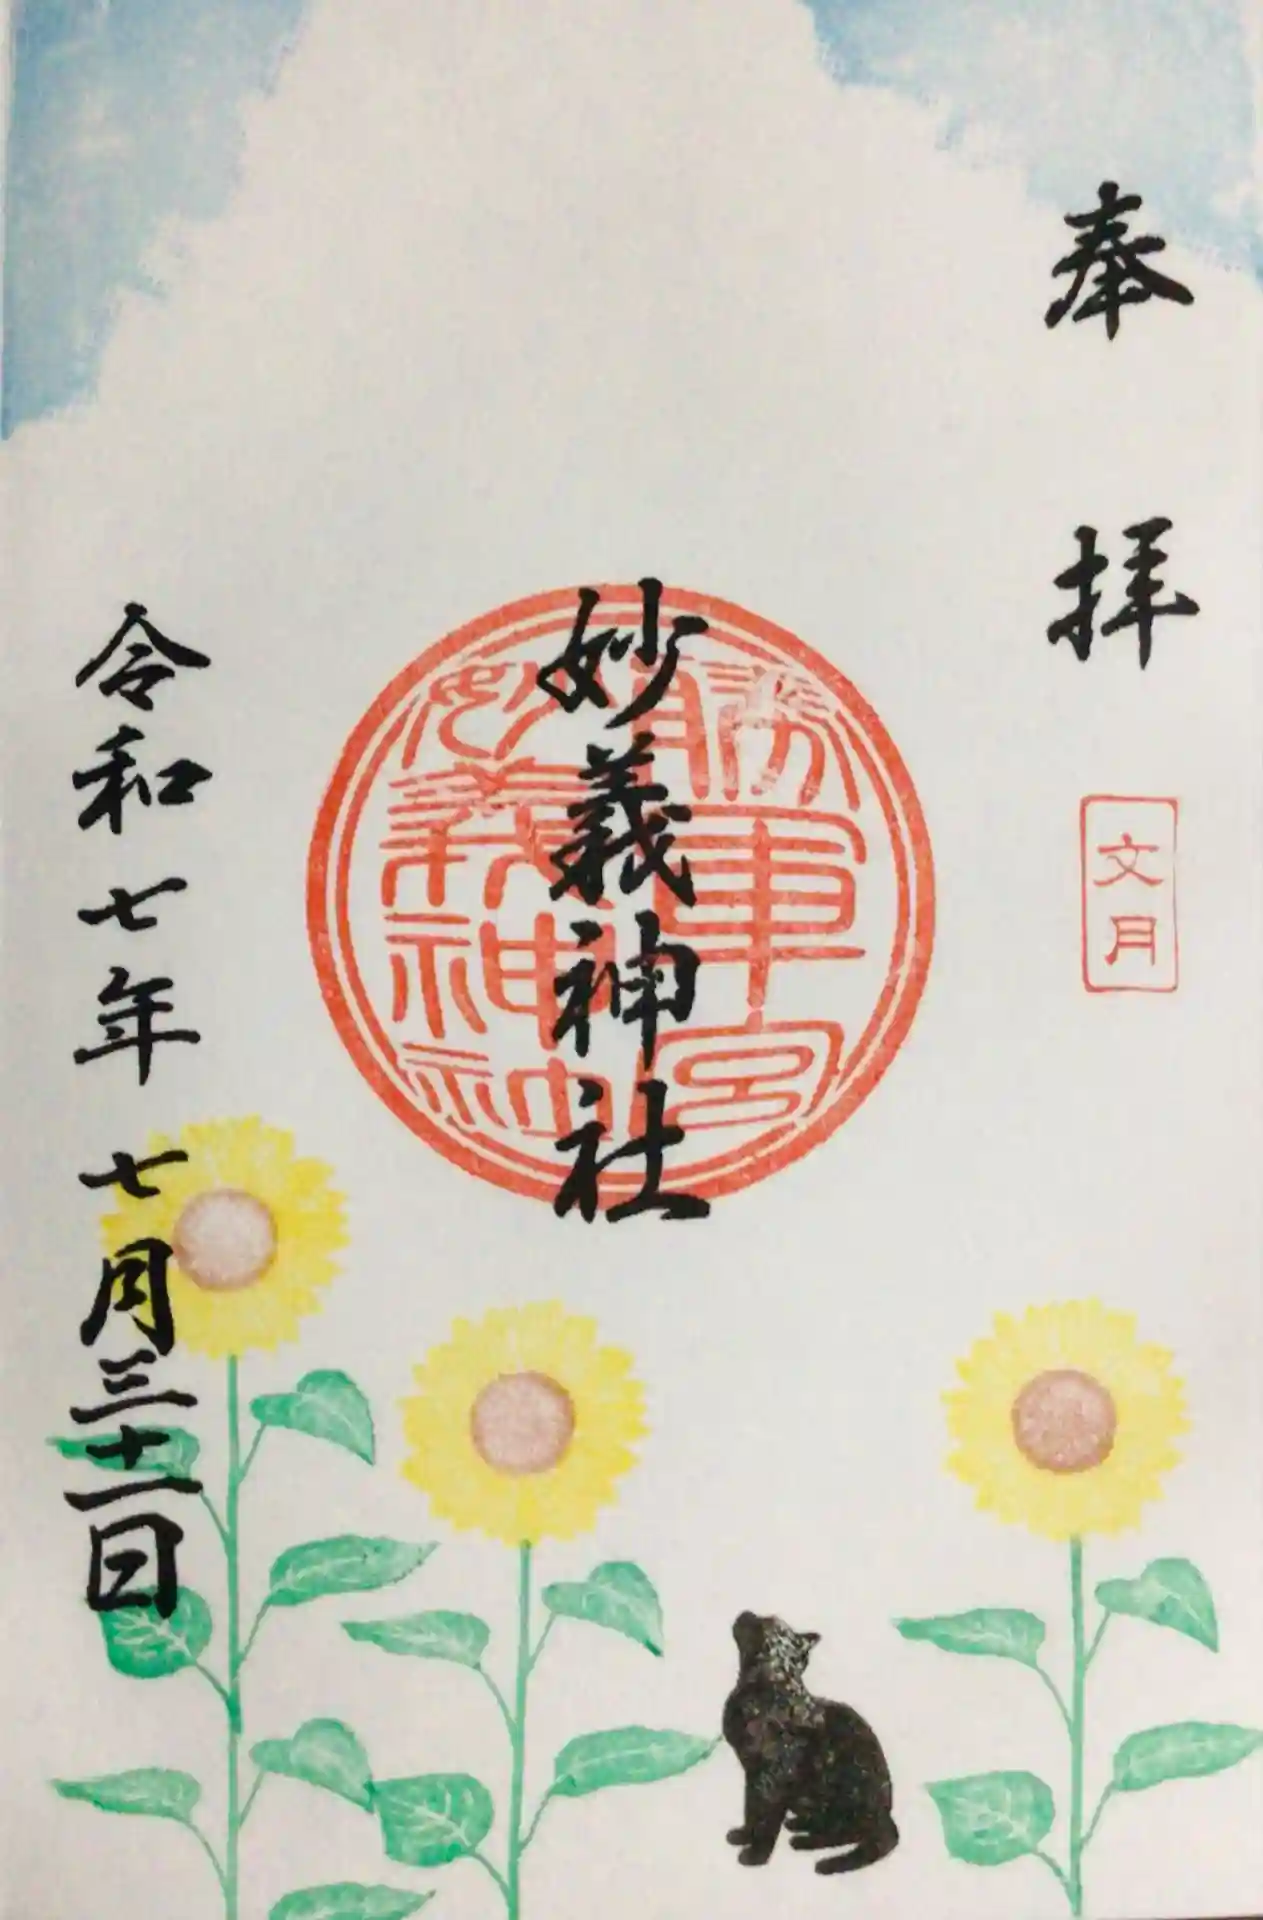 奉拝
文月
勝軍宮
妙義神社
妙義神社
令和七年七月三十一日